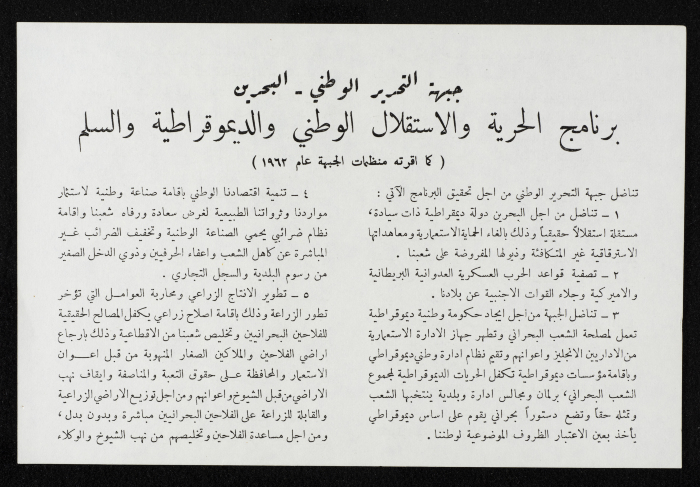 جبهة التحرير الوطني - البحرين
برنامج الحرية والاستقلال الوطني والديموقراطية والسلم
( كما اقرته منظمات الجبهة عام ١٩٦٢ )
تناضل جبهة التحرير الوطني من اجل تحقيق البرنامج الآتي :
١ – تناضل من اجل البحرين دولة ديمقراطية ذات سيادة،
مستقلة استقلالاً حقيقياً وذلك بالغاء الحماية الاستعمارية ومعاهداتها
الاسترقاقية غير المتكافئة وذيولها المفروضة على شعبنا .
٢ – تصفية قواعد الحرب العسكرية العدوانية البريطانية
والاميركية وجلاء القوات الاجنبية عن بلادنا .
٣ – تناضل الجبهة من اجل ايجاد حكومة وطنية ديموقراطية
تعمل لمصلحة الشعب البحراني وتطهر جهاز الادارة الاستعمارية
من الاداريين الانجليز واعوانهم وتقيم نظام ادارة وطني ديموقراطي
وباقامة مؤسسات ديموقراطية تكفل الحريات الديموقراطية لمجموع
الشعب البحراني، برلمان ومجالس ادارة وبلدية ينتخبها الشعب
وتمثله حقاً وتضع دستوراً بحراني يقوم على اساس ديموقراطي
يأخذ بعين الاعتبار الظروف الموضوعية لوطننا .
٤ – تنمية اقتصادنا الوطني باقامة صناعة وطنية لاستثمار
مواردنا وثرواتنا الطبيعية لغرض سعادة ورفاه شعبنا واقامة
نظام ضرائبي يحمي الصناعة الوطنية وتخفيف الضرائب غير
المباشرة عن كاهل الشعب واعفاء الحرفيين وذوي الدخل الصغير
من رسوم البلدية والسجل التجاري .
٥ – تطوير الانتاج الزراعي ومحاربة العوامل التي تؤخر
تطور الزراعة وذلك باقامة اصلاح زراعي يكفل المصالح الحقيقية
للفلاحين البحرانيين وتخليص شعبنا من الاقطاعية وذلك بارجاع
اراضي الفلاحين والملاكين الصغار المنهوبة من قبل اعوان
الاستعمار والمحافظة على حقوق التعبة والمناصفة وايقاف نهب
الاراضي من قبل الشيوخ واعوانهم ومن اجل توزيع الاراضي الزراعية
والقابلة للزراعة على الفلاحين البحرانيين مباشرة وبدون بدل،
ومن اجل مساعدة الفلاحين وتخليصهم من نهب الشيوخ والوكلاء